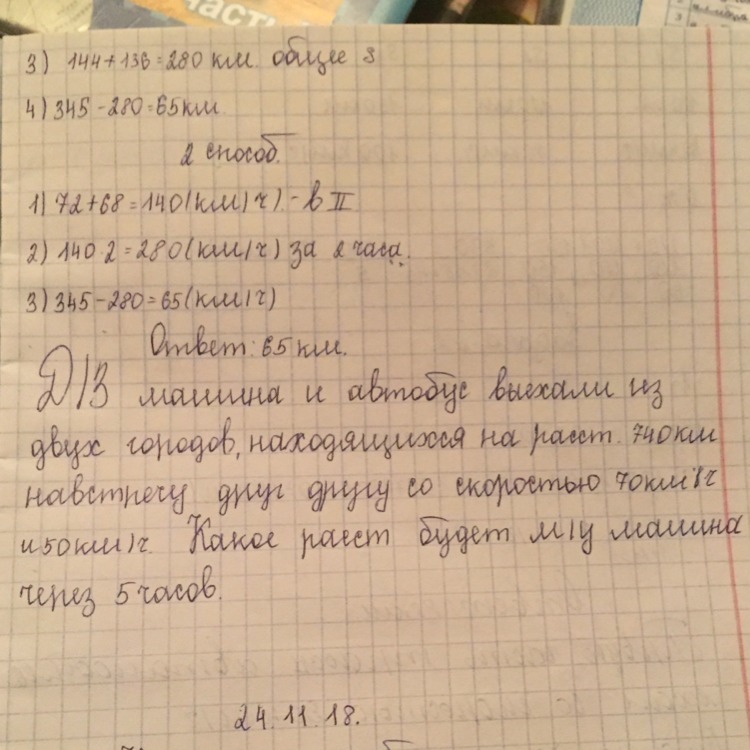 3) 144+136=280 км. общее S
4) 345-280=65 км.
2 способ.
1) 72+68=140(км/ч) - в II
2) 140·2=280(км/ч) за 2 часа.
3) 345-280=65(км/ч)
Ответ: 65 км.
Д/З машина и автобус выехали из
двух городов, находящихся на расст. 740 км
навстречу друг другу со скоростью 70 км/ч
и 50 км/ч. Какое расст будет м/у машина
через 5 часов.
24.11.18.